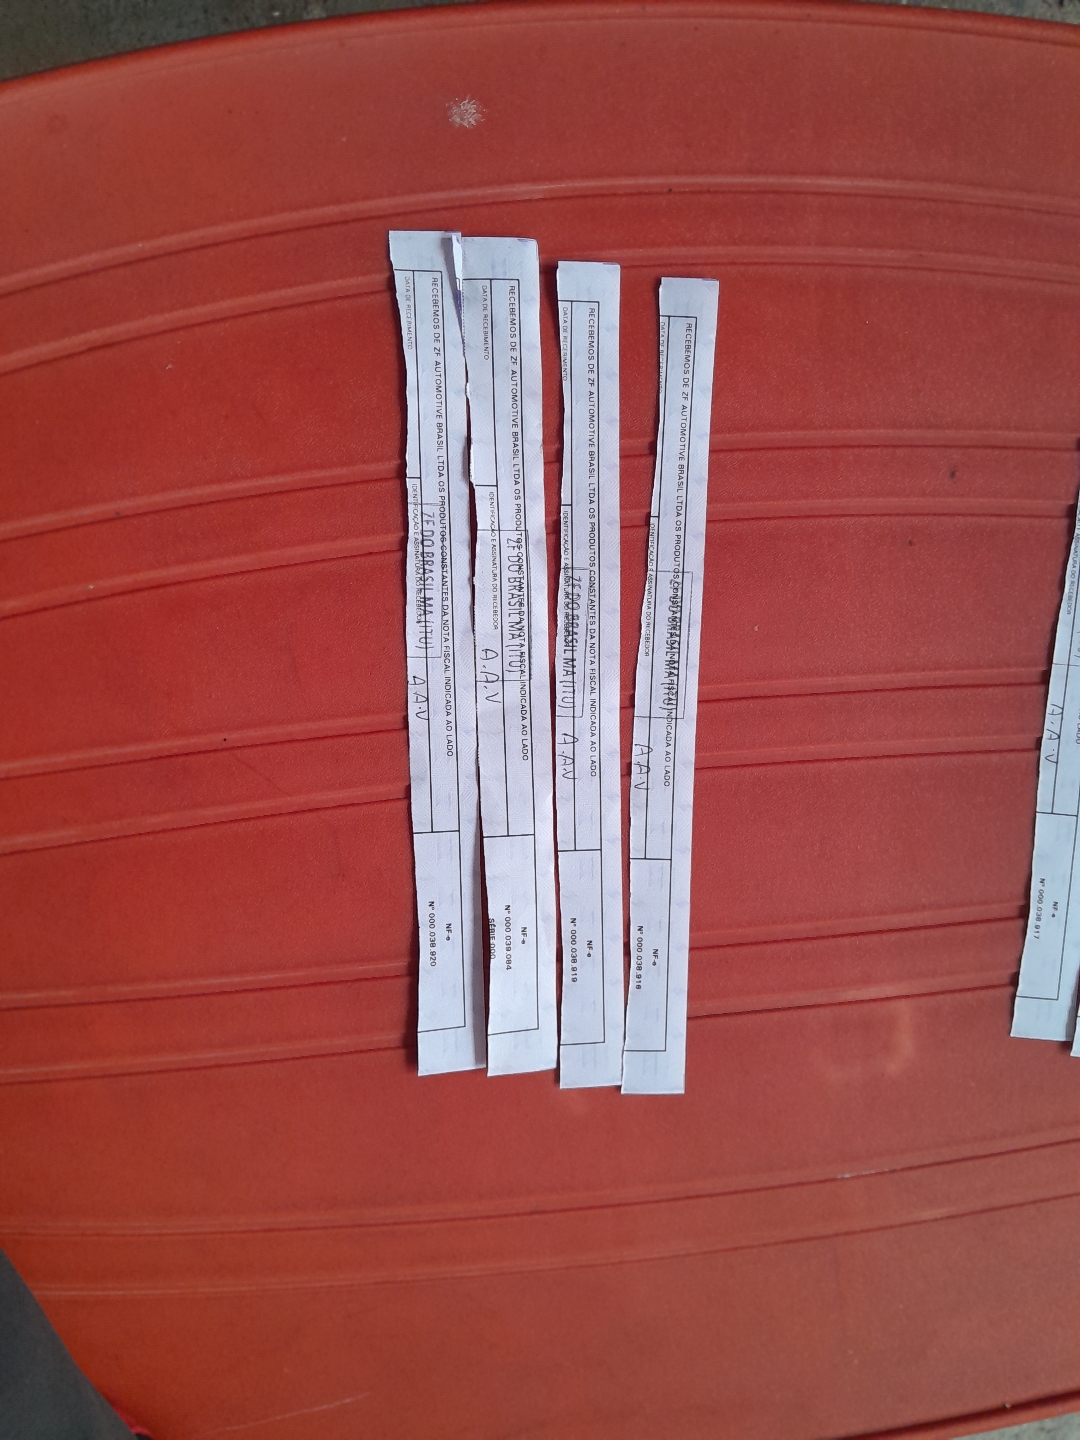 RECEBEMOS DE ZF AUTOMOTIVE BRASIL LTDA OS PRODUTOS CONSTANTES DA NOTA FISCAL INDICADA AO LADO
DATA DE RECEBIMENTO
IDENTIFICAÇÃO E ASSINATURA DO RECEBEDOR
ZF DO BRASIL MA (ITU)
A.A.V
NF-e
Nº 000.038.918
RECEBEMOS DE ZF AUTOMOTIVE BRASIL LTDA OS PRODUTOS CONSTANTES DA NOTA FISCAL INDICADA AO LADO
DATA DE RECEBIMENTO
IDENTIFICAÇÃO E ASSINATURA DO RECEBEDOR
ZF DO BRASIL MA (ITU)
A.A.V
NF-e
Nº 000.038.919
RECEBEMOS DE ZF AUTOMOTIVE BRASIL LTDA OS PRODUTOS CONSTANTES DA NOTA FISCAL INDICADA AO LADO
DATA DE RECEBIMENTO
IDENTIFICAÇÃO E ASSINATURA DO RECEBEDOR
ZF DO BRASIL MA (ITU)
A.A.V
NF-e
Nº 000.039.084
SÉRIE 000
RECEBEMOS DE ZF AUTOMOTIVE BRASIL LTDA OS PRODUTOS CONSTANTES DA NOTA FISCAL INDICADA AO LADO
DATA DE RECEBIMENTO
IDENTIFICAÇÃO E ASSINATURA DO RECEBEDOR
ZF DO BRASIL MA (ITU)
A.A.V
NF-e
Nº 000.038.920
DO RECEBEDOR
LADO
A.A.V
NF-e
Nº 000.038.917